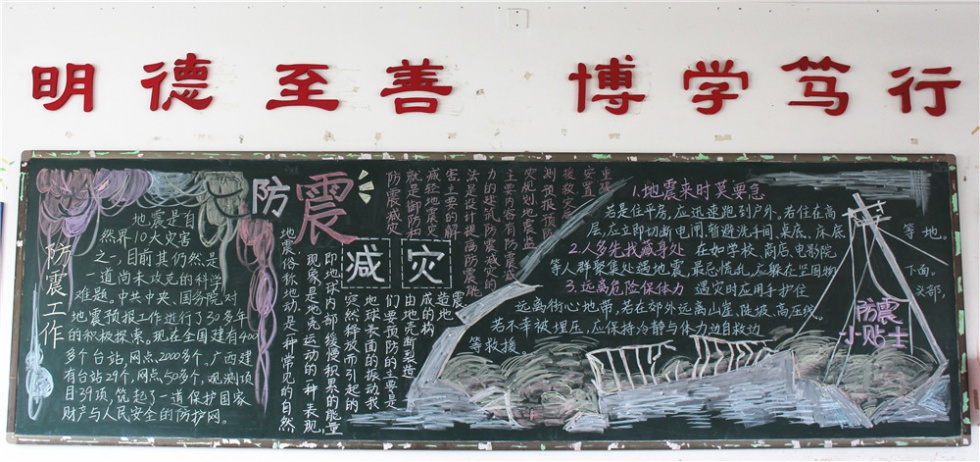 明德至善 博学笃行
防震减灾
防震工作
地震是自
然界10大灾害
之一,目前其仍然是
一道尚未攻克的科学
难题。中共中央、国务院对
地震预报工作进行了30多年
的积极探索。现在全国建有400
多个台站、网点2000多个,广西建
有台站29个,网点50多个,观测项
目39项,筑起了一道保护国家
财产与人民安全的防护网。
地震俗称地动,是一种常见的自然
现象,是地壳运动的一种表现,
即地球内部缓慢积累的能量
突然释放而引起的
地球表面的振动。我
们要预防的主要是
由地壳断裂造
成的构
造地
震。
防震减灾
就是防御和
减轻地震灾
害,主要的办
法是设计提高防震能
力的建筑。防震减灾的
主要内容有防震减
灾规划、地震监
测预报、预防
救灾
安置
1.地震来时莫要急
若是住平房,应迅速跑到户外。若住在高
层,应立即切断电闸,暂避洗手间、桌底、床底等地。
2.人多先找藏身处 在如学校、商店、电影院
等人群聚集处遇地震,最忌慌乱,应躲在坚固物下面。
3.远离危险保体力 遇灾时应用手护住头部,
远离街心地带,若在郊外远离山崖、陡坡、高压线。
若不幸被埋压,应保持冷静与体力,自救边
等救援。
防震
小贴士